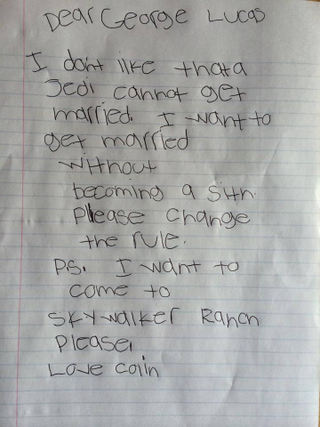 Dear George Lucas
I dont like that a
Jedi cannot get
married. I want to
get married
without
becoming a Sith.
Please change
the rule.
PS. I want to
come to
Skywalker Ranch
Please.
Love Colin